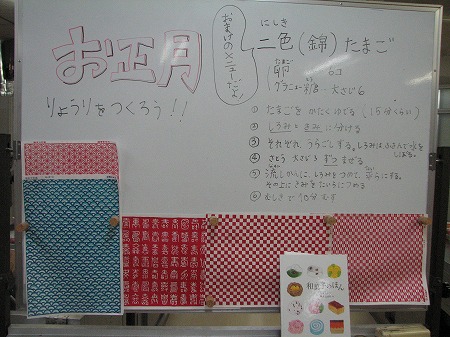 お正月
りょうりをつくろう!!
おまけのメニューだよ!
にしき
二色(錦)たまご
たまご
卵 6コ
グラニュー糖 大さじ6
① たまごをかたくゆでる(15分くらい)
② しろみときみに分ける
③ それぞれ、うらごしする。しろみはふきんで水をしぼる。
④ さとう 大さじ3ずつまぜる
⑤ 流しかんに、しろみをつめて、平らにする。
その上にきみをたいらにつめる
⑥ むしきで10分むす
和菓子のほん